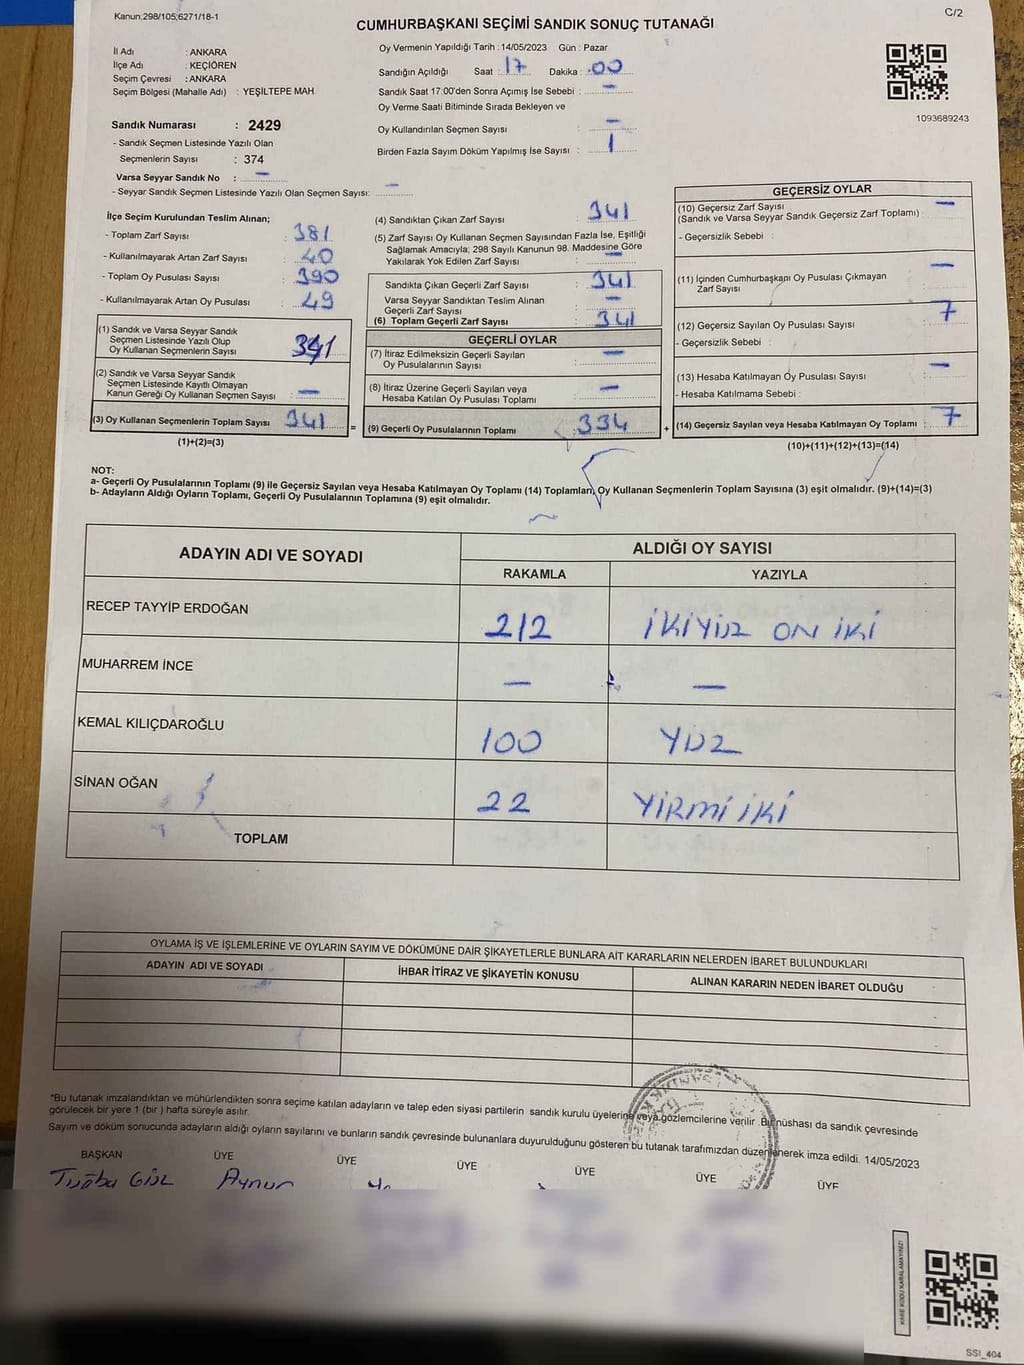 Kanun;298/105;6271/18-1
C/2
CUMHURBAŞKANI SEÇİMİ SANDIK SONUÇ TUTANAĞI
İl Adı : ANKARA
İlçe Adı : KEÇİÖREN
Seçim Çevresi : ANKARA
Seçim Bölgesi (Mahalle Adı) : YEŞİLTEPE MAH.
Oy Vermenin Yapıldığı Tarih : 14/05/2023 Gün : Pazar
Sandığın Açıldığı Saat : 17 Dakika : 00
Sandık Saat 17:00'den Sonra Açımış İse Sebebi : –
Oy Verme Saati Bitiminde Sırada Bekleyen ve
Oy Kullandırılan Seçmen Sayısı : –
Birden Fazla Sayım Döküm Yapılmış İse Sayısı : 1
1093689243
Sandık Numarası : 2429
- Sandık Seçmen Listesinde Yazılı Olan
Seçmenlerin Sayısı : 374
Varsa Seyyar Sandık No : –
- Seyyar Sandık Seçmen Listesinde Yazılı Olan Seçmen Sayısı: –
İlçe Seçim Kurulundan Teslim Alınan;
- Toplam Zarf Sayısı : 381
- Kullanılmayarak Artan Zarf Sayısı : 40
- Toplam Oy Pusulası Sayısı : 390
- Kullanılmayarak Artan Oy Pusulası : 49
(1) Sandık ve Varsa Seyyar Sandık
Seçmen Listesinde Yazılı Olup
Oy Kullanan Seçmenlerin Sayısı : 341
(2) Sandık ve Varsa Seyyar Sandık
Seçmen Listesinde Kayıtlı Olmayan
Kanun Gereği Oy Kullanan Seçmen Sayısı : –
(3) Oy Kullanan Seçmenlerin Toplam Sayısı : 341
(1)+(2)=(3)
(4) Sandıktan Çıkan Zarf Sayısı : 341
(5) Zarf Sayısı Oy Kullanan Seçmen Sayısından Fazla İse, Eşitliği
Sağlamak Amacıyla; 298 Sayılı Kanunun 98. Maddesine Göre
Yakılarak Yok Edilen Zarf Sayısı : –
Sandıkta Çıkan Geçerli Zarf Sayısı : 341
Varsa Seyyar Sandıktan Teslim Alınan
Geçerli Zarf Sayısı : –
(6) Toplam Geçerli Zarf Sayısı : 341
GEÇERLİ OYLAR
(7) İtiraz Edilmeksizin Geçerli Sayılan
Oy Pusulalarının Sayısı : –
(8) İtiraz Üzerine Geçerli Sayılan veya
Hesaba Katılan Oy Pusulası Toplamı : –
= (9) Geçerli Oy Pusulalarının Toplamı : 334 +
GEÇERSİZ OYLAR
(10) Geçersiz Zarf Sayısı : –
(Sandık ve Varsa Seyyar Sandık Geçersiz Zarf Toplamı)
- Geçersizlik Sebebi :
(11) İçinden Cumhurbaşkanı Oy Pusulası Çıkmayan
Zarf Sayısı : –
(12) Geçersiz Sayılan Oy Pusulası Sayısı : 7
- Geçersizlik Sebebi :
(13) Hesaba Katılmayan Oy Pusulası Sayısı : –
- Hesaba Katılmama Sebebi :
(14) Geçersiz Sayılan veya Hesaba Katılmayan Oy Toplamı : 7
(10)+(11)+(12)+(13)=(14)
NOT:
a- Geçerli Oy Pusulalarının Toplamı (9) ile Geçersiz Sayılan veya Hesaba Katılmayan Oy Toplamı (14) Toplamları, Oy Kullanan Seçmenlerin Toplam Sayısına (3) eşit olmalıdır. (9)+(14)=(3)
b- Adayların Aldığı Oyların Toplamı, Geçerli Oy Pusulalarının Toplamına (9) eşit olmalıdır.
ADAYIN ADI VE SOYADI ALDIĞI OY SAYISI
RAKAMLA YAZIYLA
RECEP TAYYİP ERDOĞAN 212 İKİYÜZ ON İKİ
MUHARREM İNCE – –
KEMAL KILIÇDAROĞLU 100 YÜZ
SİNAN OĞAN 22 YİRMİ İKİ
TOPLAM
OYLAMA İŞ VE İŞLEMLERİNE VE OYLARIN SAYIM VE DÖKÜMÜNE DAİR ŞİKAYETLERLE BUNLARA AİT KARARLARIN NELERDEN İBARET BULUNDUKLARI
ADAYIN ADI VE SOYADI İHBAR İTİRAZ VE ŞİKAYETİN KONUSU ALINAN KARARIN NEDEN İBARET OLDUĞU
*Bu tutanak imzalandıktan ve mühürlendikten sonra seçime katılan adayların ve talep eden siyasi partilerin sandık kurulu üyelerine veya gözlemcilerine verilir. Bir nüshası da sandık çevresinde
görülecek bir yere 1 (bir ) hafta süreyle asılır.
Sayım ve döküm sonucunda adayların aldığı oyların sayılarını ve bunların sandık çevresinde bulunanlara duyurulduğunu gösteren bu tutanak tarafımızdan düzenlenerek imza edildi. 14/05/2023
BAŞKAN ÜYE ÜYE ÜYE ÜYE ÜYE ÜYE
Aynur
KARE KODU KARALAMAYINIZ!
SSI_404